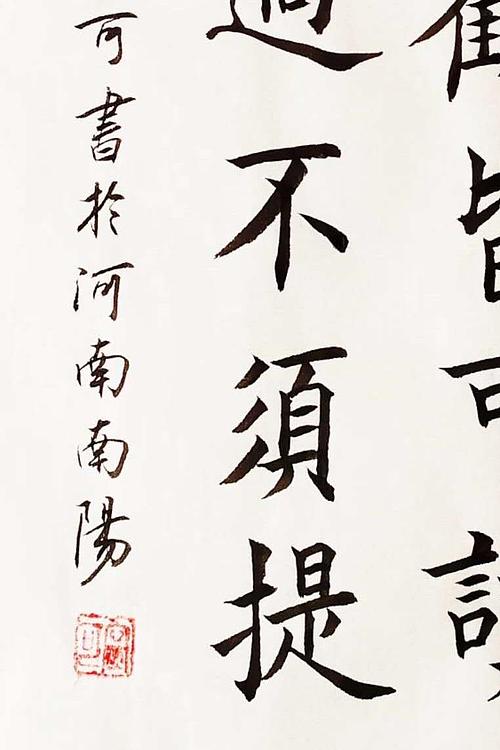 皆可
過不須提
可書於河南南陽